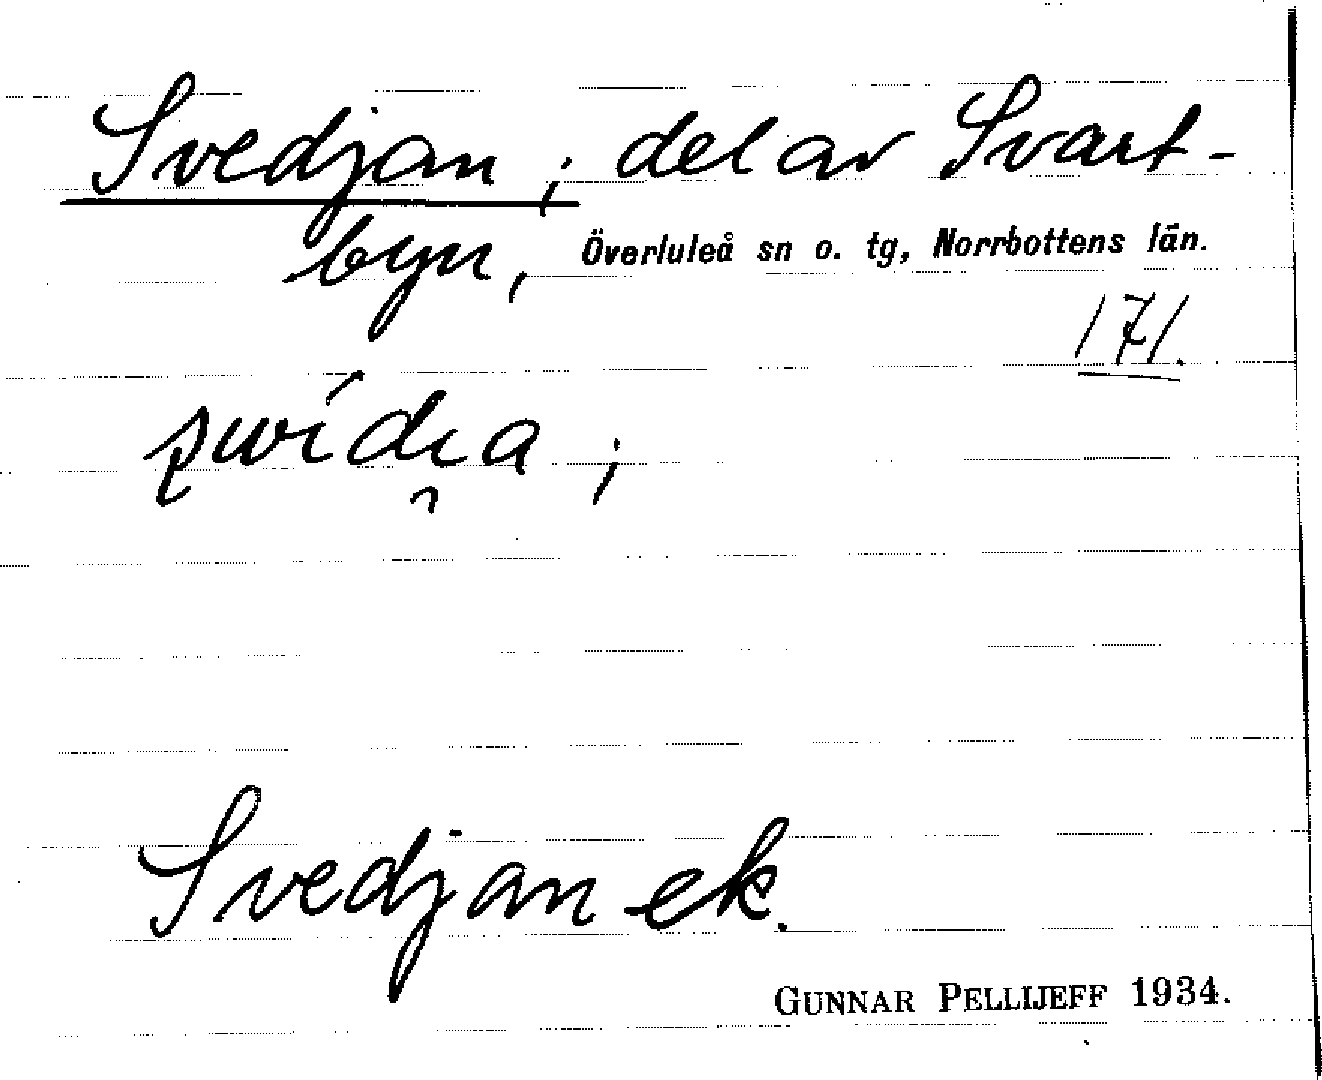 Svedjan; del av Svart-
byn, Överluleå sn o. tg, Norrbottens län.
171.
Svedjan ek.
GUNNAR PELLIJEFF 1934.